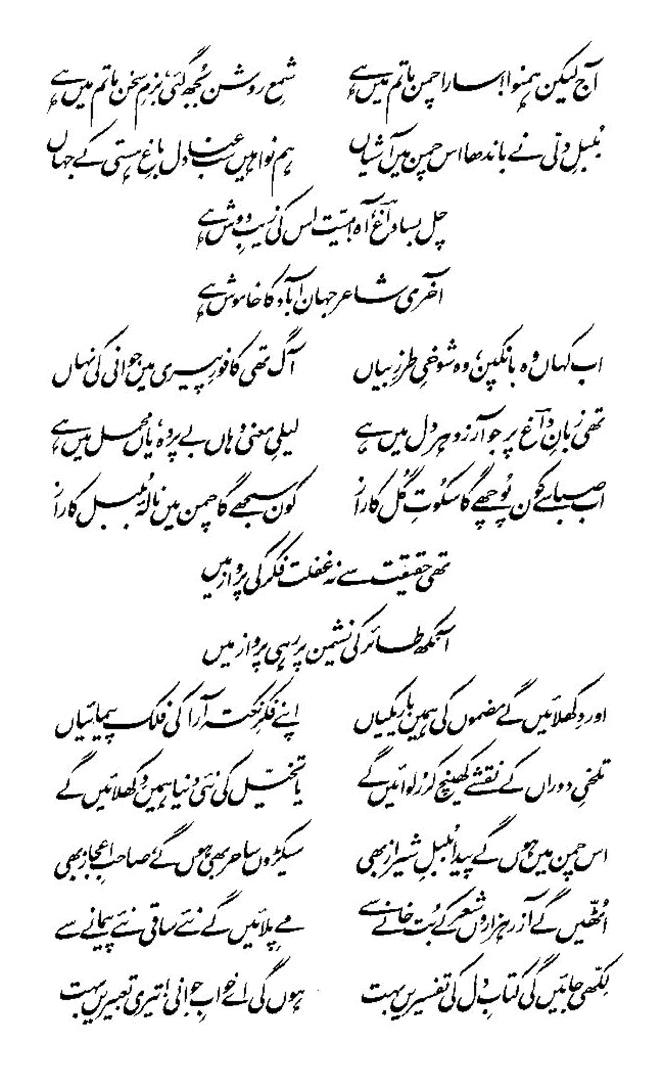 آج لیکن ہمنوا! سارا چمن ماتم میں ہے شمع روشن بجھ گئی، بزمِ سخن ماتم میں ہے
بُلبلِ دلّی نے باندھا اس چمن میں آشیاں ہم نوا ہیں سب عنادل باغِ ہستی کے جہاں
چل بسا داغ آہ! میّت اس کی زیبِ دوش ہے
آخری شاعر جہان آباد کا خاموش ہے
اب کہاں وہ بانکپن، وہ شوخیِ طرزِ بیاں آگ تھی کافورِ پیری میں جوانی کی نہاں
تھی زبانِ داغ پر جو آرزو ہر دل میں ہے لیلیِ معنی وہاں بے پردہ، یاں محمل میں ہے
اب صبا سے کون پُوچھے گا سکُوتِ گُل کا راز کون سمجھے گا چمن میں نالۂ بُلبل کا راز
تھی حقیقت سے نہ غفلت فکر کی پرواز میں
آنکھ طائر کی نشیمن پر رہی پرواز میں
اور دِکھلائیں گے مضموں کی ہمیں باریکیاں اپنے فکرِ نکتہ آرا کی فلک پیمائیاں
تلخیِ دوراں کے نقشے کھینچ کر رُلوائیں گے یا تخیّل کی نئی دنیا ہمیں دِکھلائیں گے
اس چمن میں ہوں گے پیدا بُلبلِ شیراز بھی سیکڑوں ساحر بھی ہوں گے، صاحبِ اعجاز بھی
اُٹھیں گے آزر ہزاروں شعر کے بُت خانے سے مے پلائیں گے نئے ساقی نئے پیمانے سے
لِکھّی جائیں گی کتابِ دل کی تفسیریں بہت ہوں گی اے خوابِ جوانی! تیری تعبیریں بہت